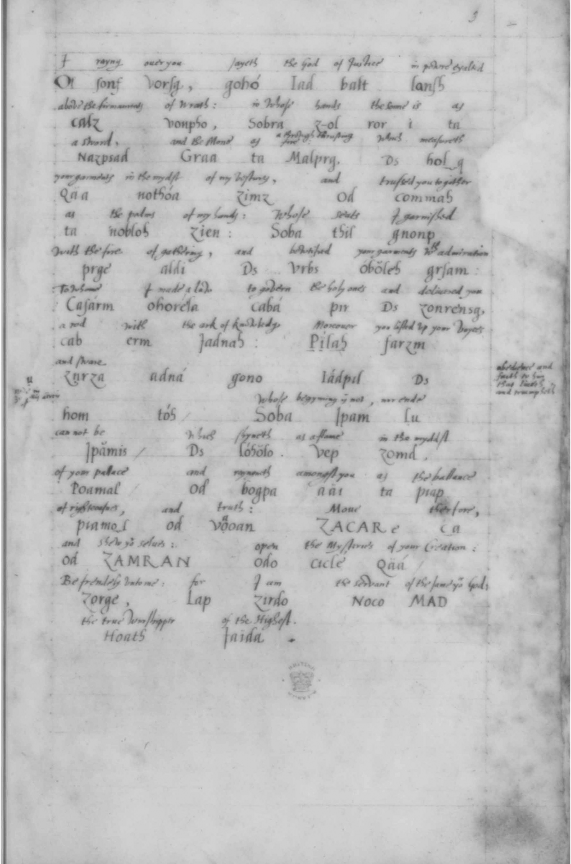 3
I rayng ouer you sayeth the God of Justice in powre exalted
Ol sonf vorsg, gohó Iad balt lansh
aboue the firmaments of Wrath: in Whose hands the sonne is as
calz vonpho, Sobra z-ol ror i ta
a sword, and the Mone as a through thrusting fire: Which measureth
Nazpsad Graa ta Malprg, Ds hol q
your garments in the mydst of my vestures, and trussed you together
Qaa nothóa zimz Od commah
as the palms of my hands: Whose seats I garnished
ta nobloh zien: Soba thil gnonp
With the fire of gathering, and beautified your garments wth admiration
prge aldi Ds vrbs óbôleh grsam:
To whome I made a law to govern the holy ones and deliuered you
Casárm ohoréla cabá pir Ds zonrensg,
a rod with the ark of knowledg Moreouer you lifted vp your voyces
cab erm Jadnah: Pilah farzm
and sware
znrza adná gono Iádpil Ds
obedience and faith to him that liueth and triumpheth
Whose begynning is not, nor ende
hom tóh Soba Ipam lu
can not be Which shyneth as a flame in the myddst
Ipãmis Ds lóhôlo. vep zomd.
of your palace and rayneth amongst you as the ballance
Poamal od bogpa aäi ta piap
of righteousnes, and truth: Moue therfore,
piamol od vôoan ZACARe ca
and shew yor selues: open the Mysteries of your Creation:
od ZAMRAN odo cicle Qäá
Be frendely vnto me: for I am the servant of the same yor God:
Zorge, Lap zirdo Noco MAD
the true Worshipper of the Highest.
Hoath Jaida.